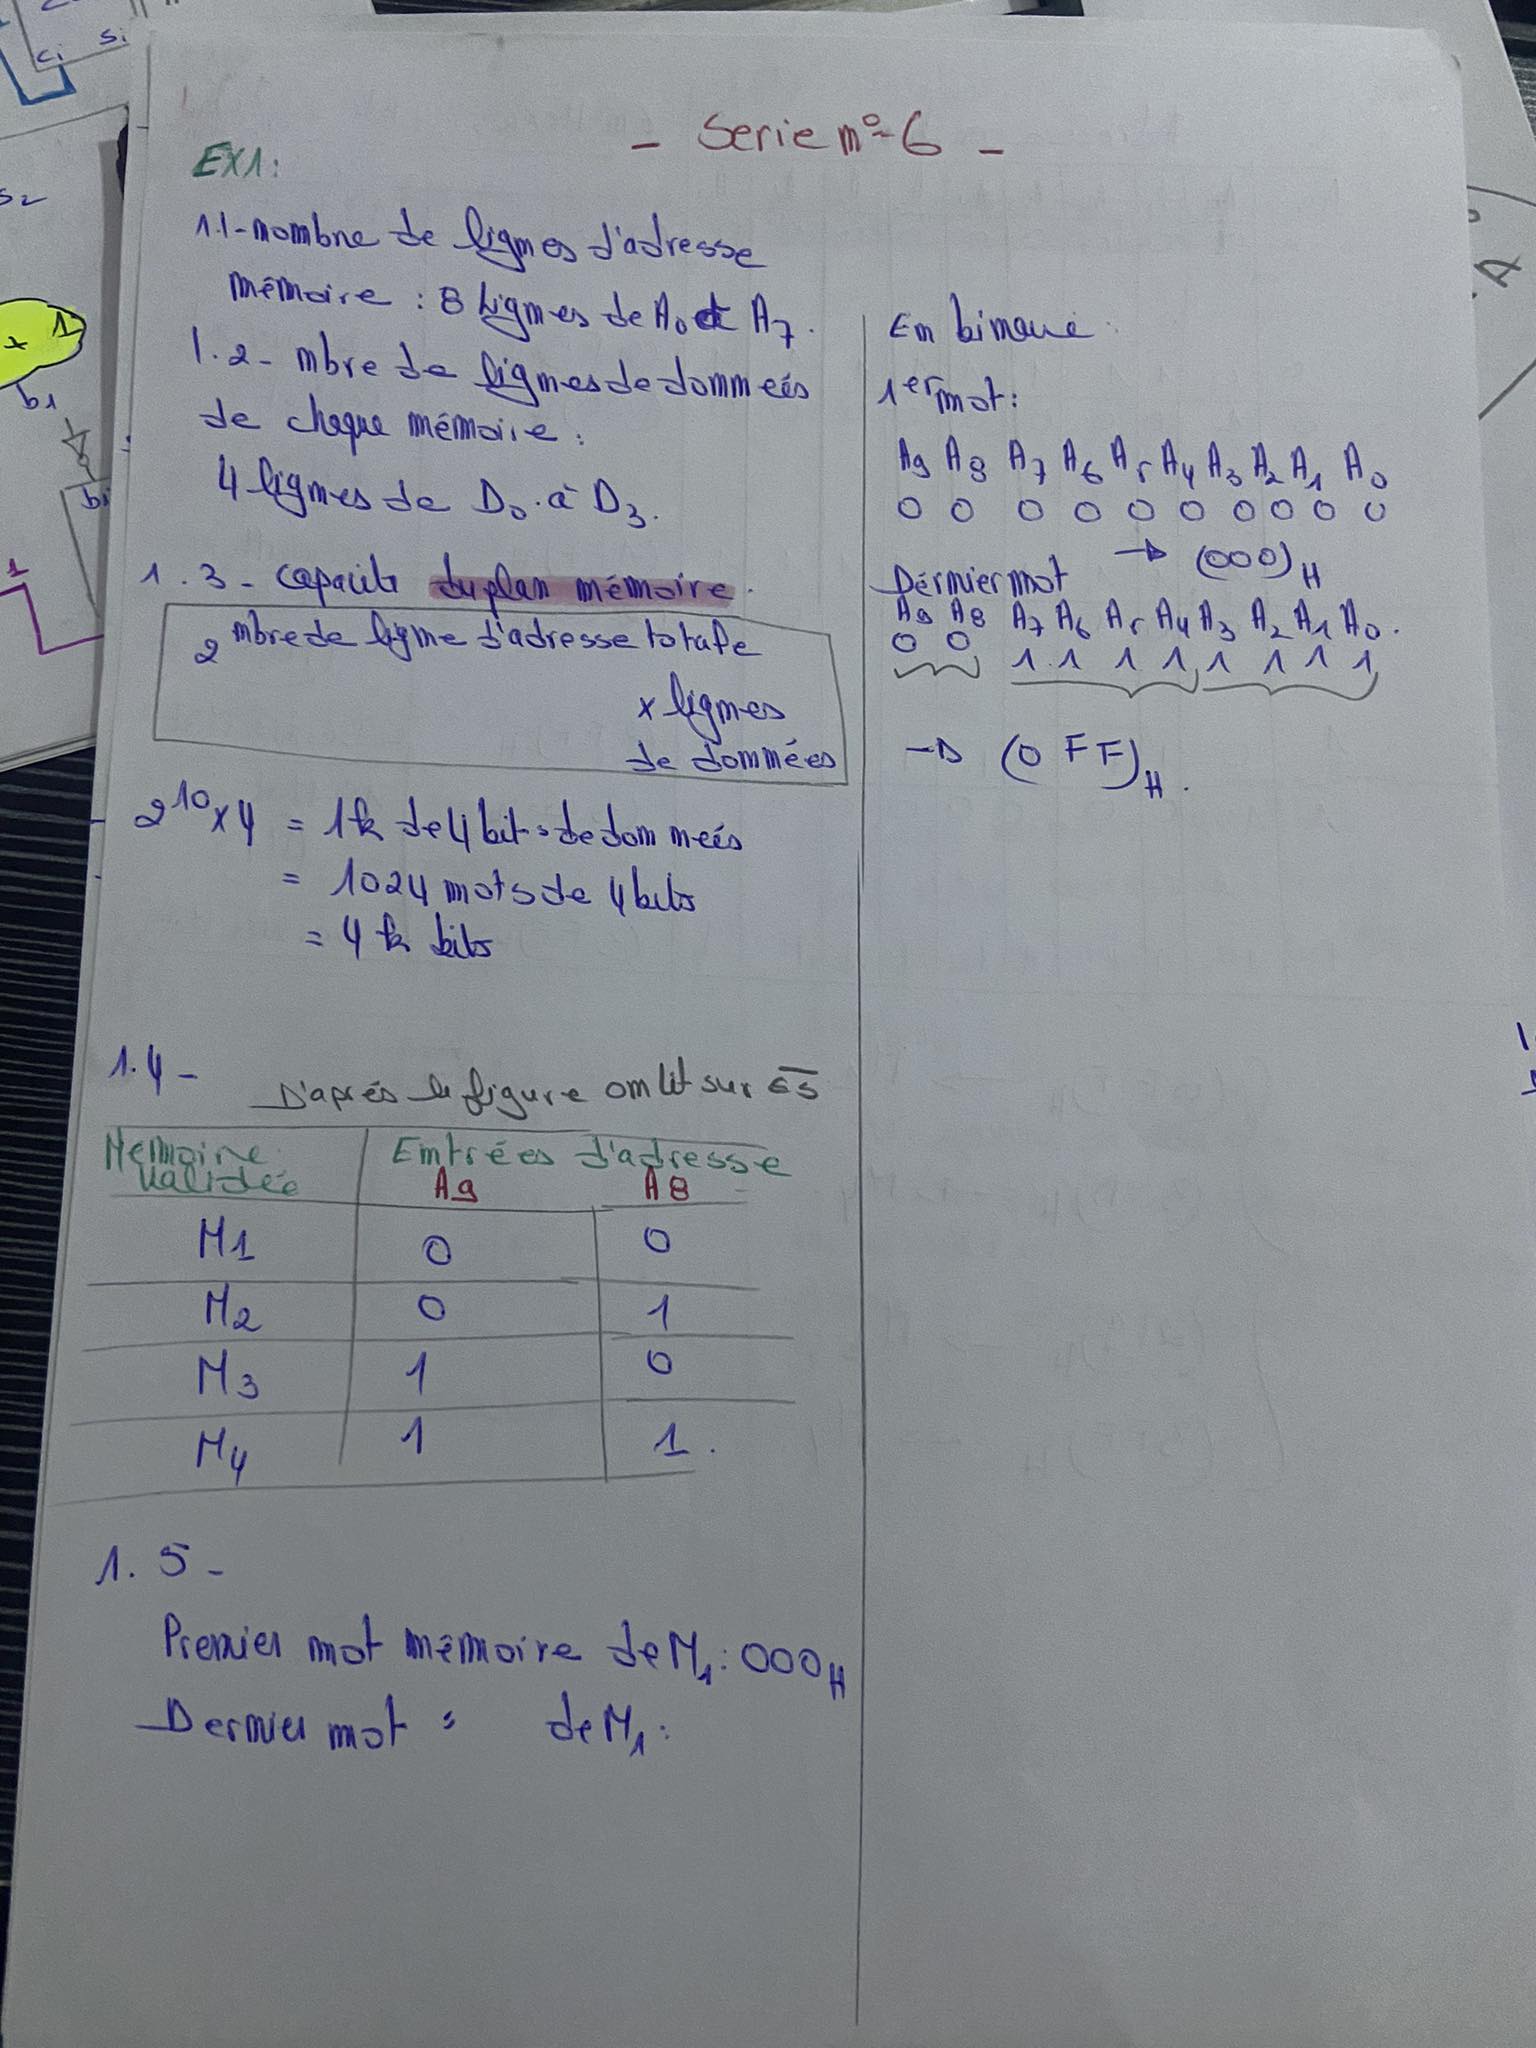 - Serie n°6 -
EX1:
1.1- nombre de lignes d'adresse
mémoire : 8 lignes de A0 et A7.
1.2- nbre de lignes de données
de chaque mémoire :
4 lignes de D0 à D3.
1.3- capacité du plan mémoire.
2 nbre de ligne d'adresse totale
x lignes
de données
2^10 x 4 = 1k de 4 bits de données
= 1024 mots de 4 bits
= 4 k bits
1.4-
D'après la figure on lit sur CS
Mémoire Entrées d'adresse
validée A9 A8
M1 0 0
M2 0 1
M3 1 0
M4 1 1.
1.5-
Premier mot mémoire de M1: 000H
Dernier mot " de M1:
En binaire :
1er mot:
A9 A8 A7 A6 A5 A4 A3 A2 A1 A0
0 0 0 0 0 0 0 0 0 0
→ (000)H
Dérnier mot
A9 A8 A7 A6 A5 A4 A3 A2 A1 A0.
0 0 1 1 1 1 1 1 1 1
→ (0 F F)H.
Ci Si
S2
x 1
b1
1
A